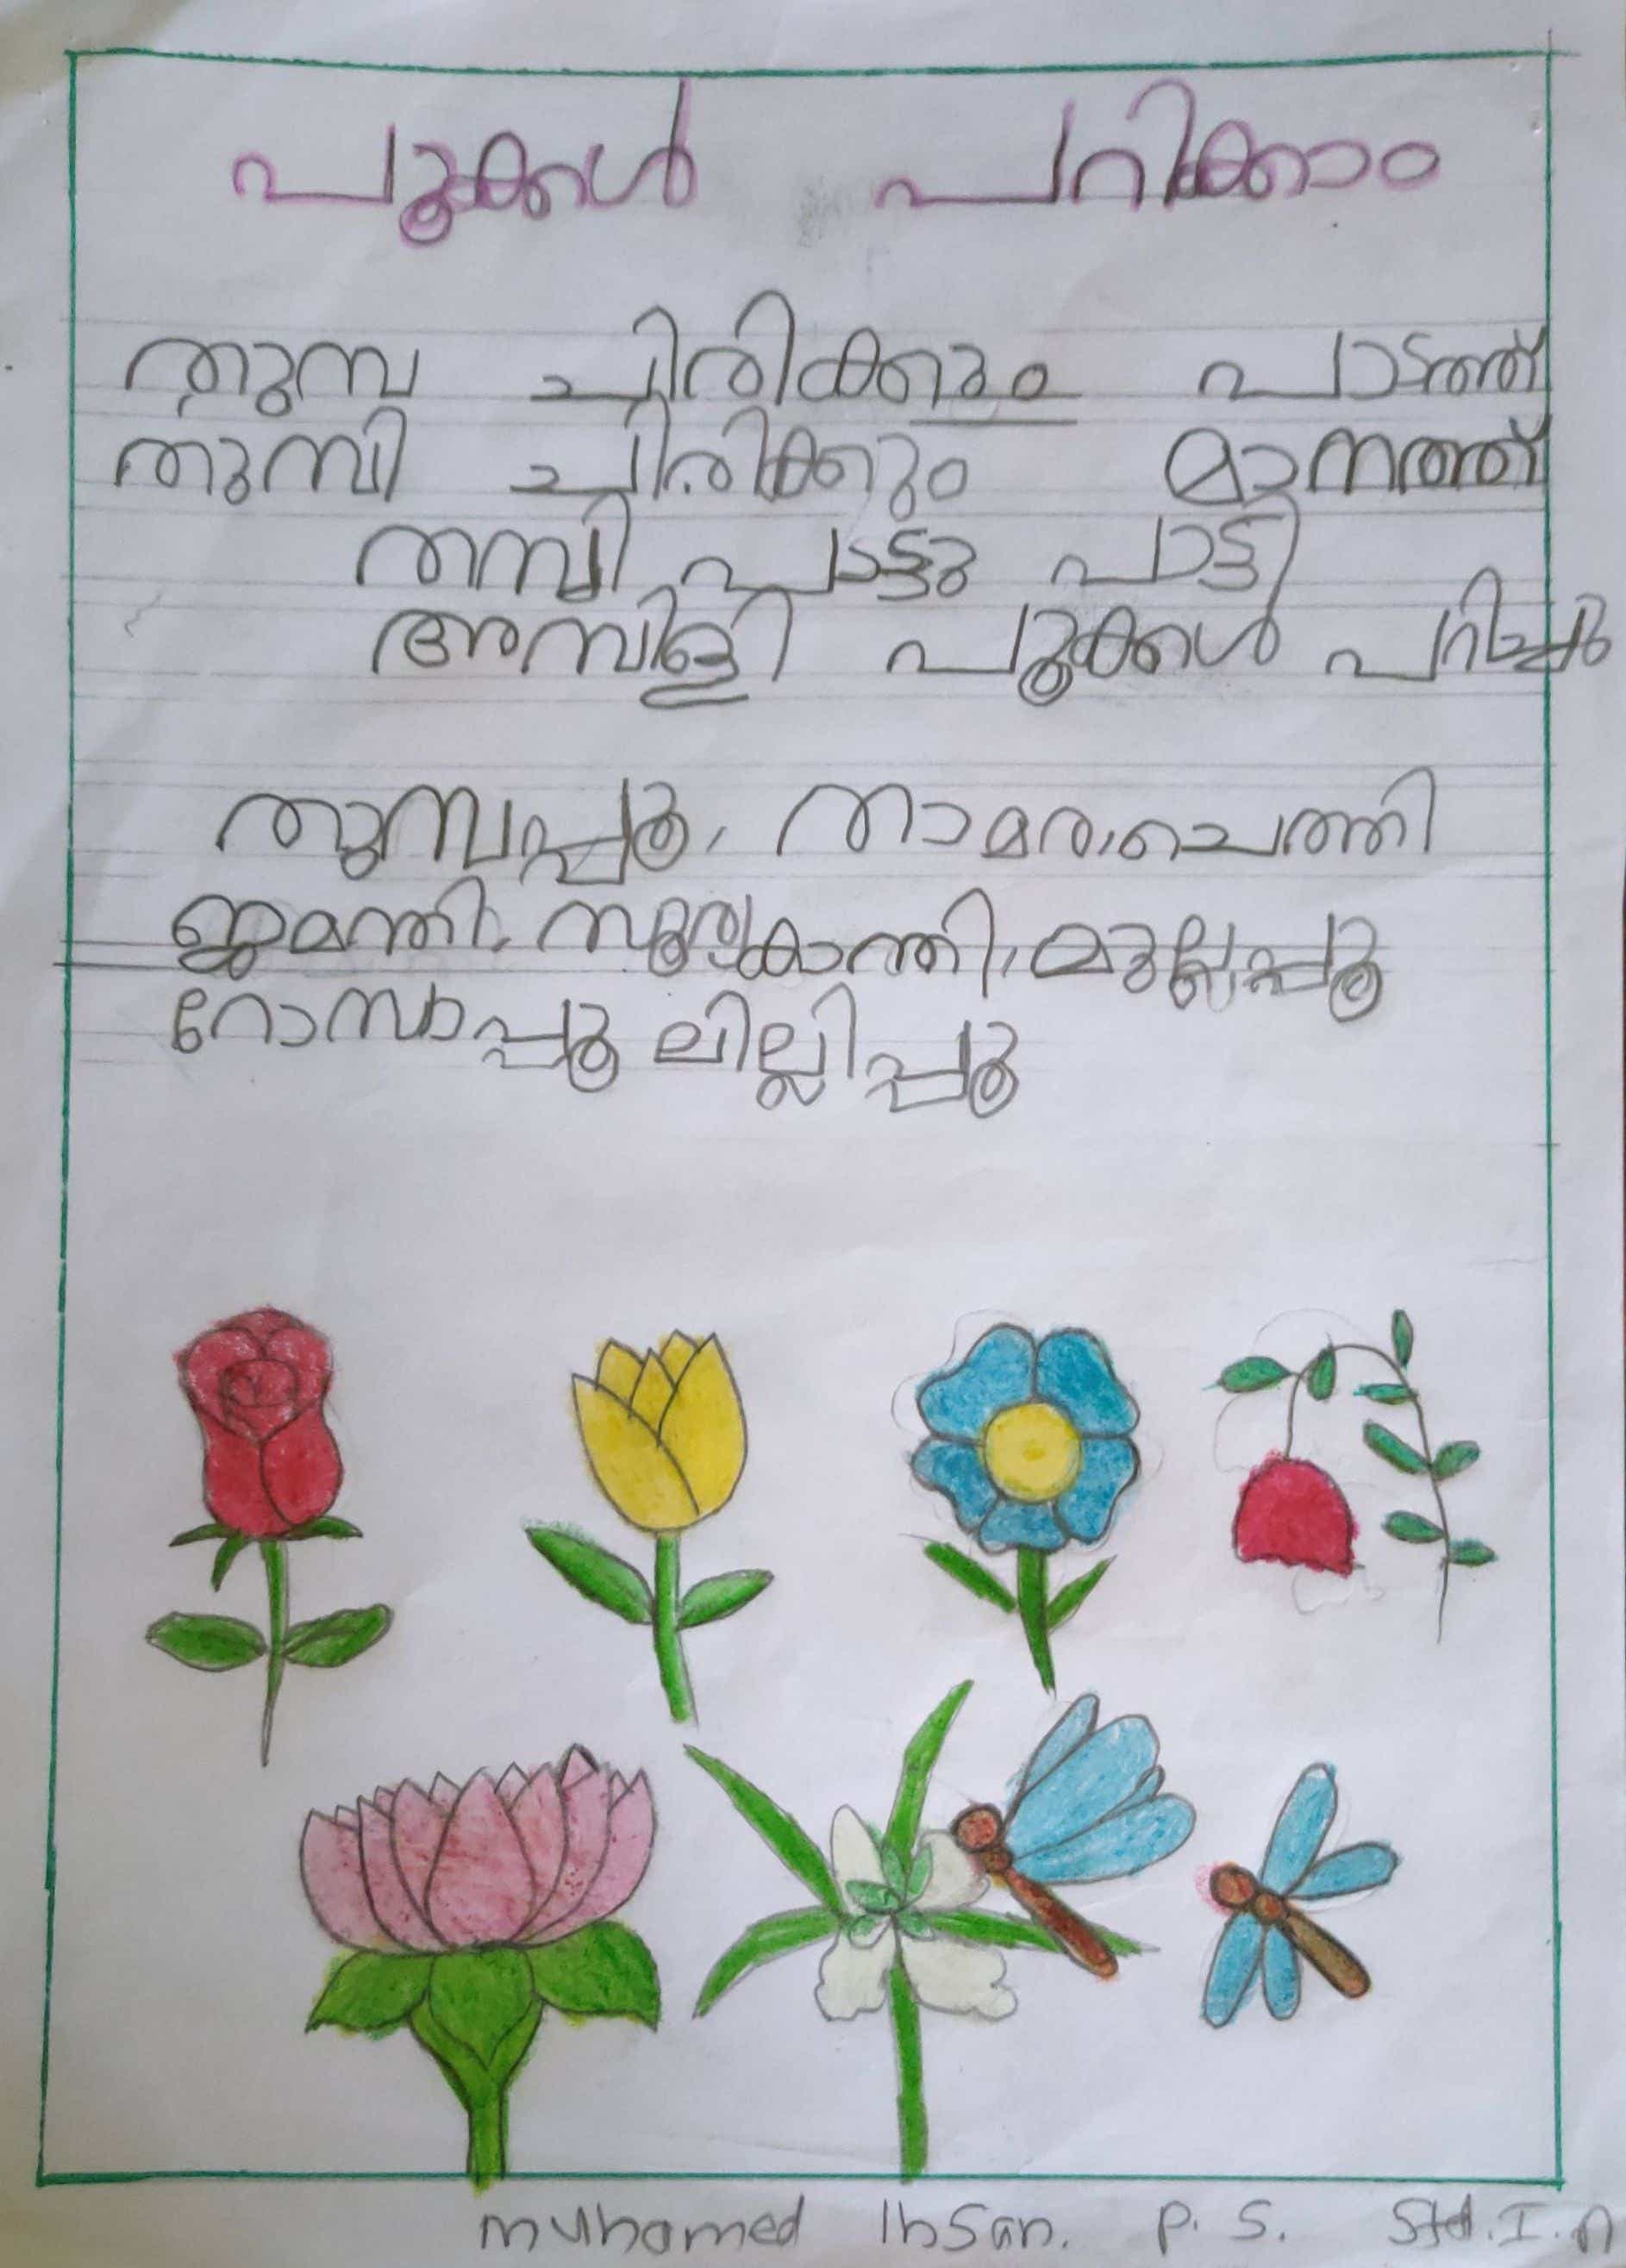 പൂക്കൾ പറിക്കാം
തുമ്പ ചിരിക്കും പാടത്ത്
തുമ്പി ചിരിക്കും മാനത്ത്
തമ്പി പാട്ടു പാട്ടി
അമ്പിളി പൂക്കൾ പറിച്ചു
തുമ്പപ്പൂ, താമര, ചെത്തി
ജമന്തി, സൂര്യകാന്തി, മുല്ലപ്പൂ
റോസാപ്പൂ ലില്ലിപ്പൂ
muhamed Ihsan. P. S. Std. I.